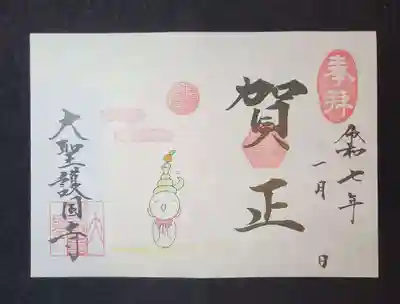 奉拝
令和七年
一月 日
賀正
大聖護国寺